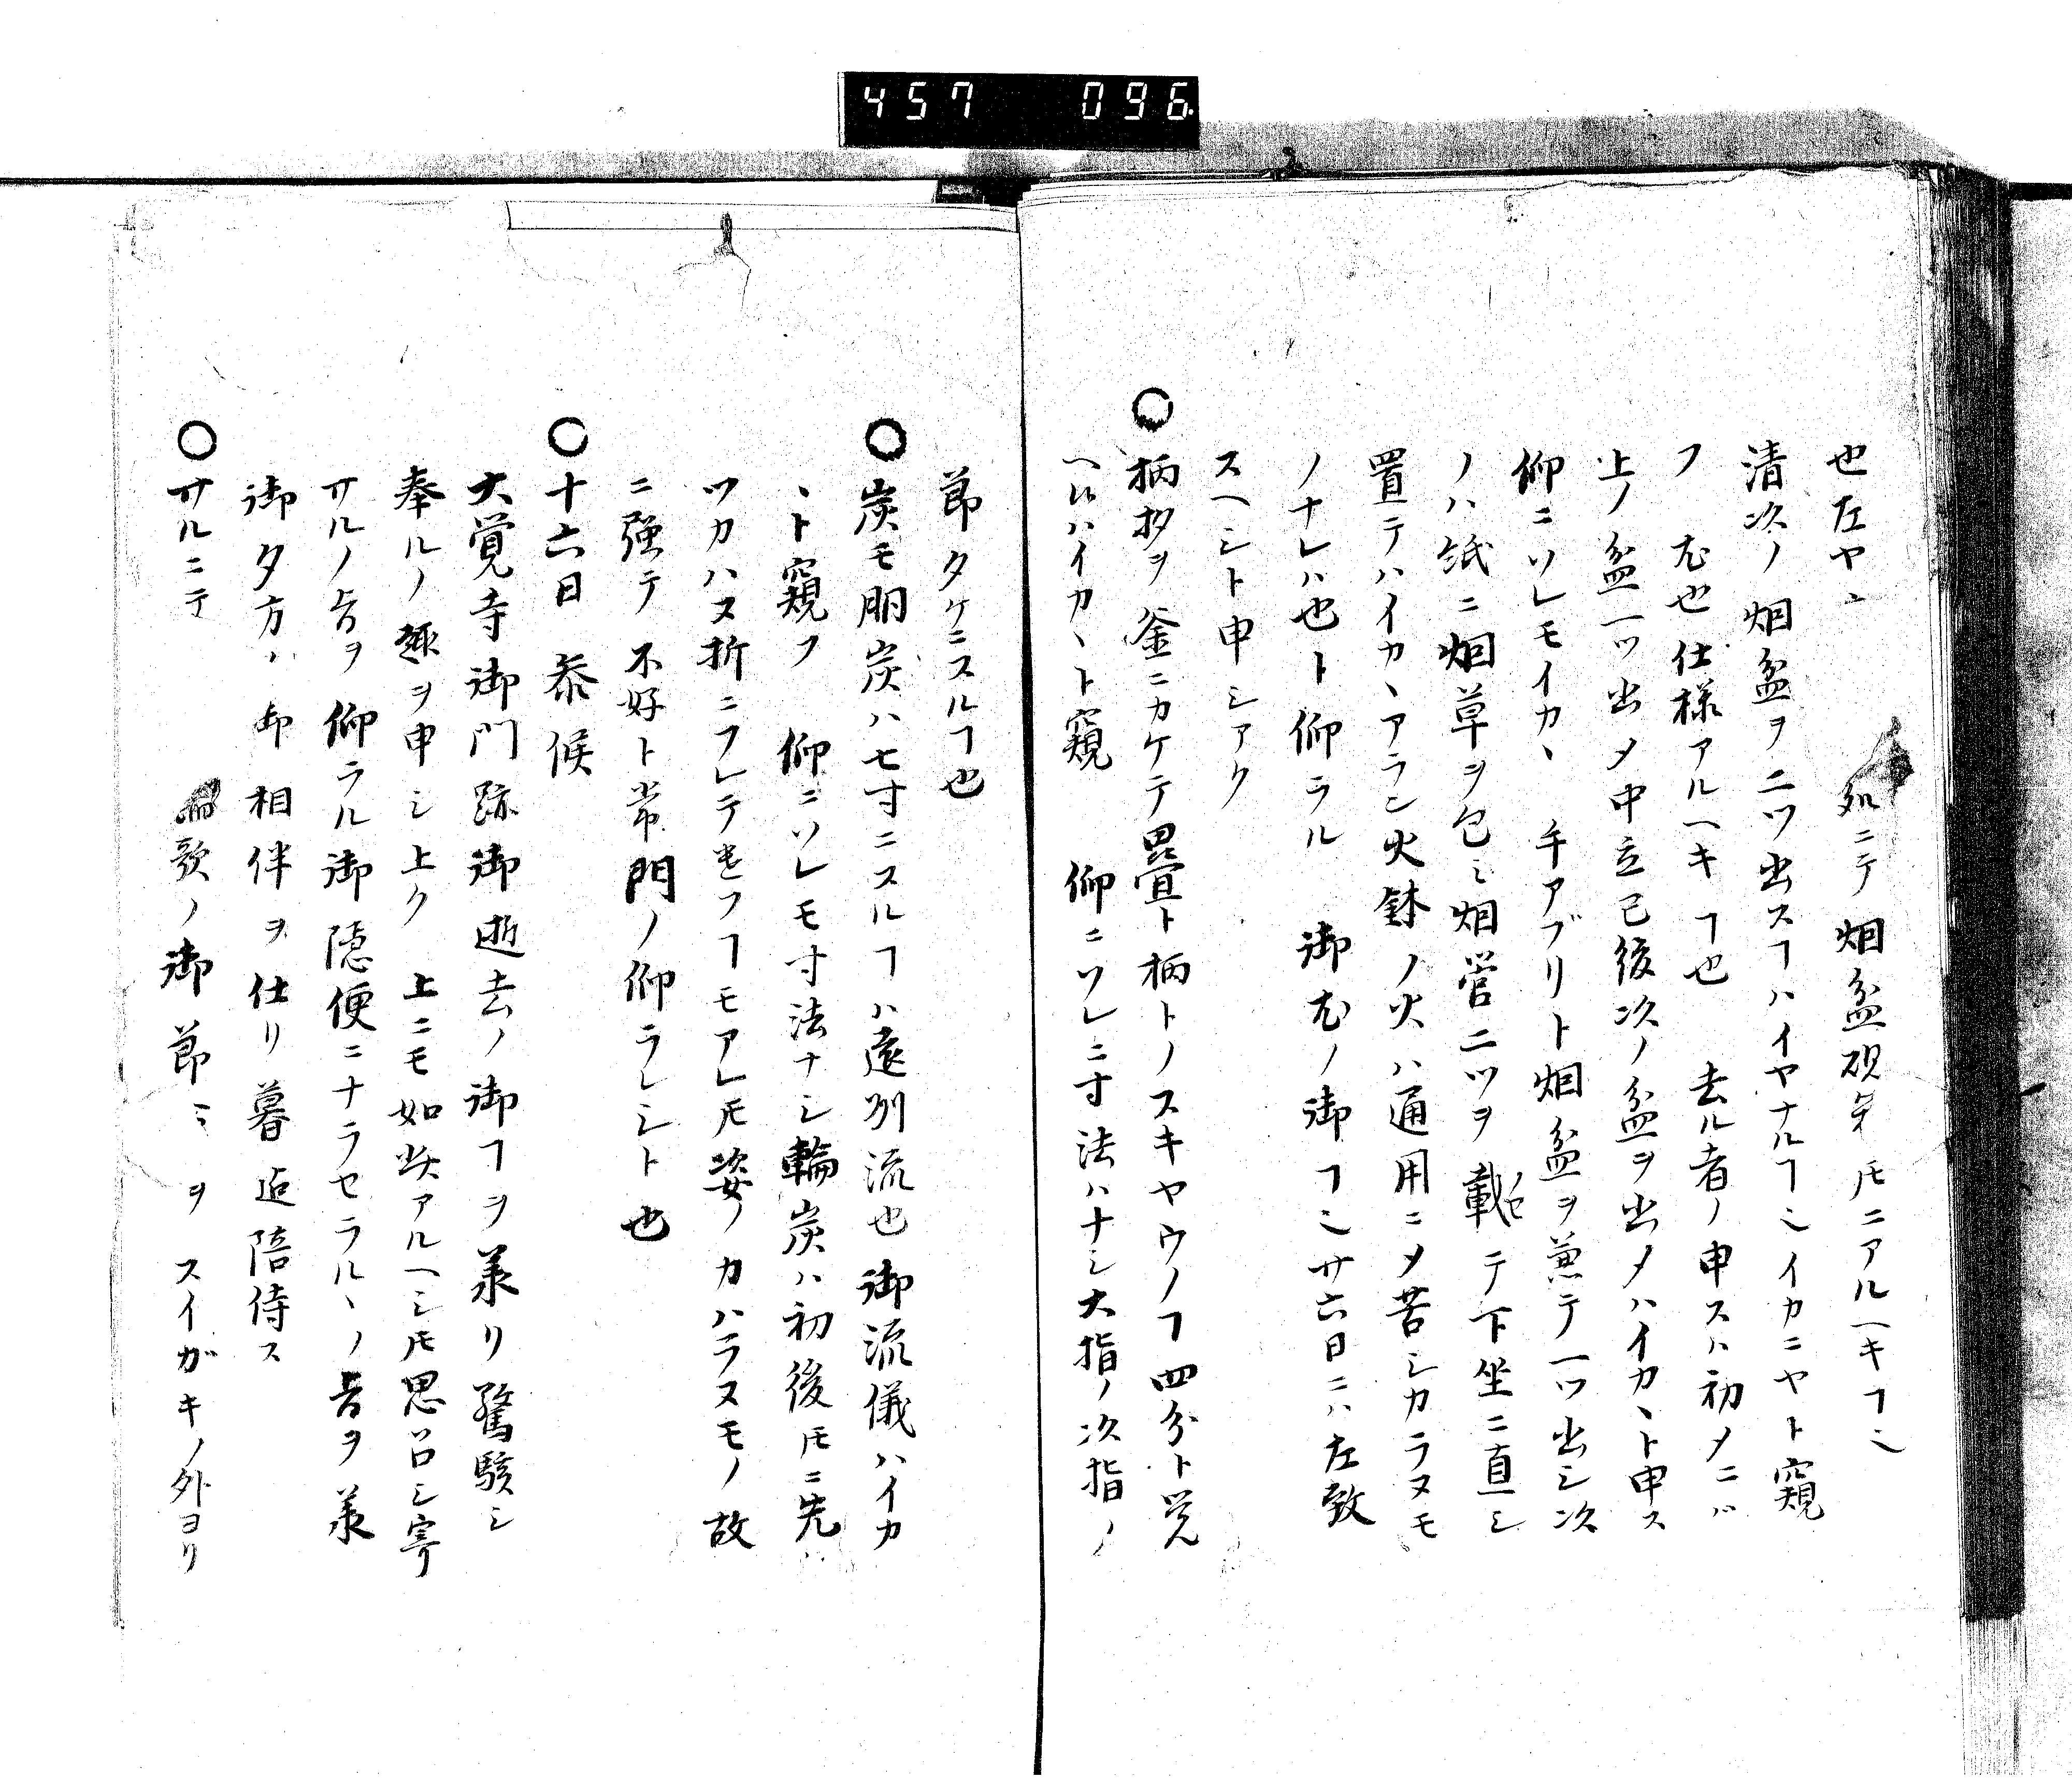 457 096
也左ヤニ 処ニテ烟盆硯ホ𪜈ニアルヘキヿ乄
清次ノ烟盆ヲ二ツ出スヿハイヤナルヿ乄イカニヤト窺
フ 尤也仕様アルヘキヿ也 去ル者ノ申スハ初メニハ
上ノ盆一ツ出メ中立已後次ノ盆ヲ出メハイカヽト申ス
仰ニソレモイカヽ 手アブリト烟盆ヲ兼テ一ツ出シ次
ノハ紙ニ烟草ヲ包ミ烟管二ツヲ載テ下坐ニ直シ
置テハイカヽアラン火鉢ノ火ハ通用ニメ苦シカラヌモ
ノナレハ也ト仰ラル 御尤ノ御ヿ乄廿六日ニハ左致
スヘシト申シアク
○柄杓ヲ釜ニカケテ畳ト柄トノスキヤウノヿ四分ト覚
ヘ候ハイカヽト窺 仰ニソレニ寸法ハナシ大指ノ次指ノ
節タケニスルヿ也
○炭モ胴炭ハ七寸ニスルヿハ遠州流也御流儀ハイカ
ヽト窺フ 仰ニソレモ寸法ナシ輪炭ハ初後𪜈ニ先ハ
ツカハヌ折ニフレテモチフヿモアレ𪜈姿ノカハラヌモノ故
ニ強テ不好ト常門ノ仰ラレシト也
○十六日参候
大覚寺御門跡御逝去ノ御ヿヲ承リ驚駭シ
奉ルノ趣ヲ申シ上ク 上ニモ如渋アルヘシ𪜈思召シ寄
サルノ旨ヲ仰ラル御隠便ニナラセラルヽノ旨ヲ承
御夕方ノ御相伴ヲ仕リ暮迄陪侍ス
○サルニテ 歌ノ御節ミヲスイガキノ外ヨリ